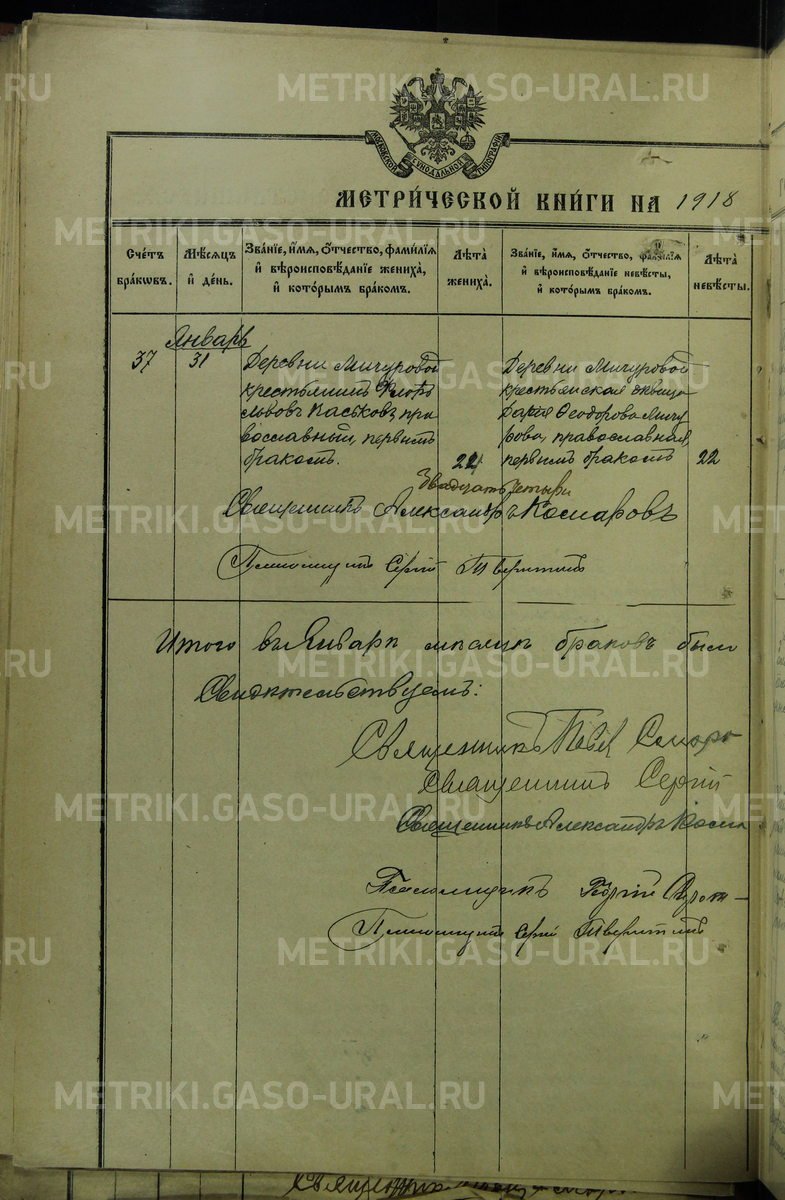 МОСКОВСКОЙ СѴНОДАЛЬНОЙ ТИПОГРАФІИ
МЕТРИ́ЧЕСКОЙ КНИ́ГИ НА 1918
Сче́тъ бра́кѡвъ.
Мѣ́сяцъ и҆ де́нь.
Зва́нїе, и҆́мѧ, ѻ҆́тчество, фами́лїѧ и҆ вѣроисповѣ́данїе жениха̀, и҆ кото́рымъ бра́комъ.
Лѣ́та жениха̀.
Зва́нїе, и҆́мѧ, ѻ҆́тчество, фами́лїѧ и҆ вѣроисповѣ́данїе невѣ́сты, и҆ кото́рымъ бра́комъ.
Лѣ́та невѣ́сты.
Январь
37
31
Деревни Мичуровой
крестьянинъ
Львовъ Каськовъ, пра
вославный, первымъ
бракомъ.
24
двадцать четыре
Деревни Мичуровой
крестьянская девица
Дарія Ѳеодорова Мичу
рова, православная,
первымъ бракомъ
22
Священникъ Александръ Комаровъ
Псаломщикъ Сергій Тверитинъ
Итого въ Январѣ мѣсяцѣ браковъ было
Свидѣтельствуемъ:
Священникъ
Священникъ Сергій
Священникъ Александръ Кома
Псаломщикъ Георгій
Псаломщикъ Сергій Тверитинъ
METRIKI.GASO-URAL.RU